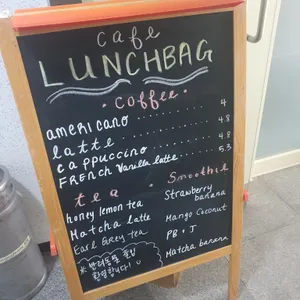 cafe
LUNCHBAG
· coffee ·
americano 4
latte 4.8
cappuccino 4.8
FRENCH Vanilla latte 5.3
tea
honey lemon tea
Matcha latte
Earl Grey tea
· Smoothie
Strawberry banana
Mango Coconut
PB + J
Matcha banana
* 반려동물 출입
환영합니다!